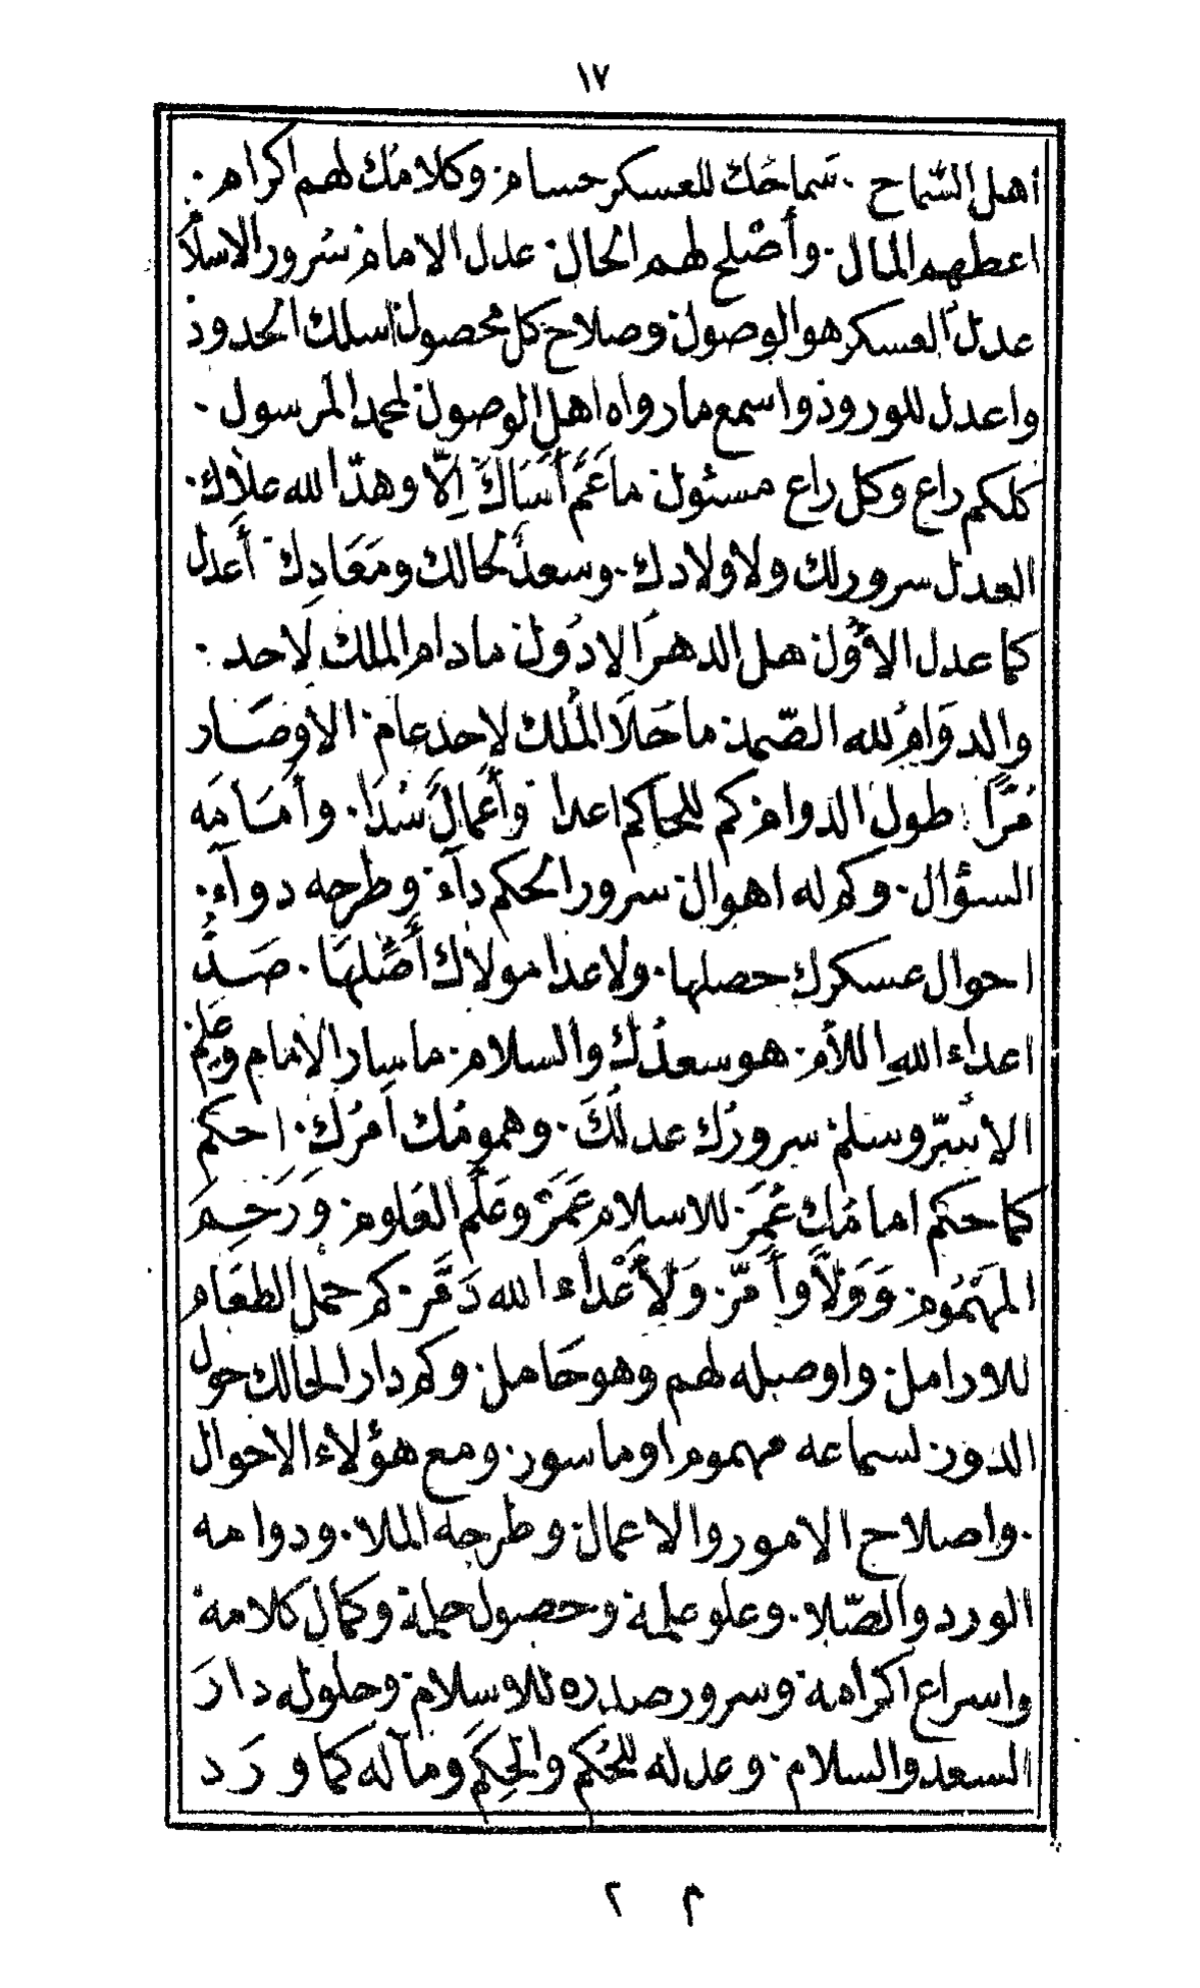 ١٧
اهل السّماح . سَماحُك للعسكر حسام . وكلامُك لهم اكرام .
اعطهم المال . وأصْلح لهم الحال . عدل الامام سُرور الاسلام
عدلُ العسكر هو الوصول . وصلاح كل محصول . اسلك الحدود
واعدل للورود واسمع ما رواه اهل الوصول . لمحمد المرسول .
كلكم راع وكل راع مسئول . ما عَمَّ أسَاكَ إلّا وهدّ الله علاك .
العدل سرور لك ولاولادك . وسعدٌ لحالك ومَعَادِك . أعدل
كما عدل الأُوَل . هل الدهرُ الا دُوَل . ما دام الملك لاحد .
والدوَامُ لله الصّمد . ما حَلَا المُلك لاحد عام . الا وصَار
مُرًّا طول الدوام . كم للحاكم اعدا . وأعمالٌ سُدَا . وأمَامَه
السؤال . وكم له اهوال . سرور الحكم دآء . وطرحه دوآء .
احوال عسكرك حصلها . ولاعدا مولاك أصِّلها . صَدُّ
اعداء اللهِ اللأم . هو سعدُك والسلام . ما سار الامام وعَلِم
الاسرّ وسلم . سرورُك عدلُكَ . وهمومُك أمرُك . احكم
كما حكم امامُك عُمَر . للاسلام عَمَّرَ وعَلَّم العلوم . وَرَحِمَ
المهْمُوم . وَوَلَّا وأمّر . وَلأَعْداء الله دَمَّر . كم حمل الطعَام
للارامل . واوصله لهم وهو حَامل . وكم دار الحالك حول
الدور . لسماعه مهموم او ماسور . ومع هؤلاء الاحوال
. واصلاح الامور والاعمال . وطرحه الملا . ودوامه
الورد والصّلا . وعلو علمه . وحصول حلمه . وكمال كلامه .
واسراع اكرامه . وسرور صدره للاسلام . وحلوله دارَ
السعد والسلام . وعدله للحُكم والحِكَم ومآله كما وَرَد
م ٢